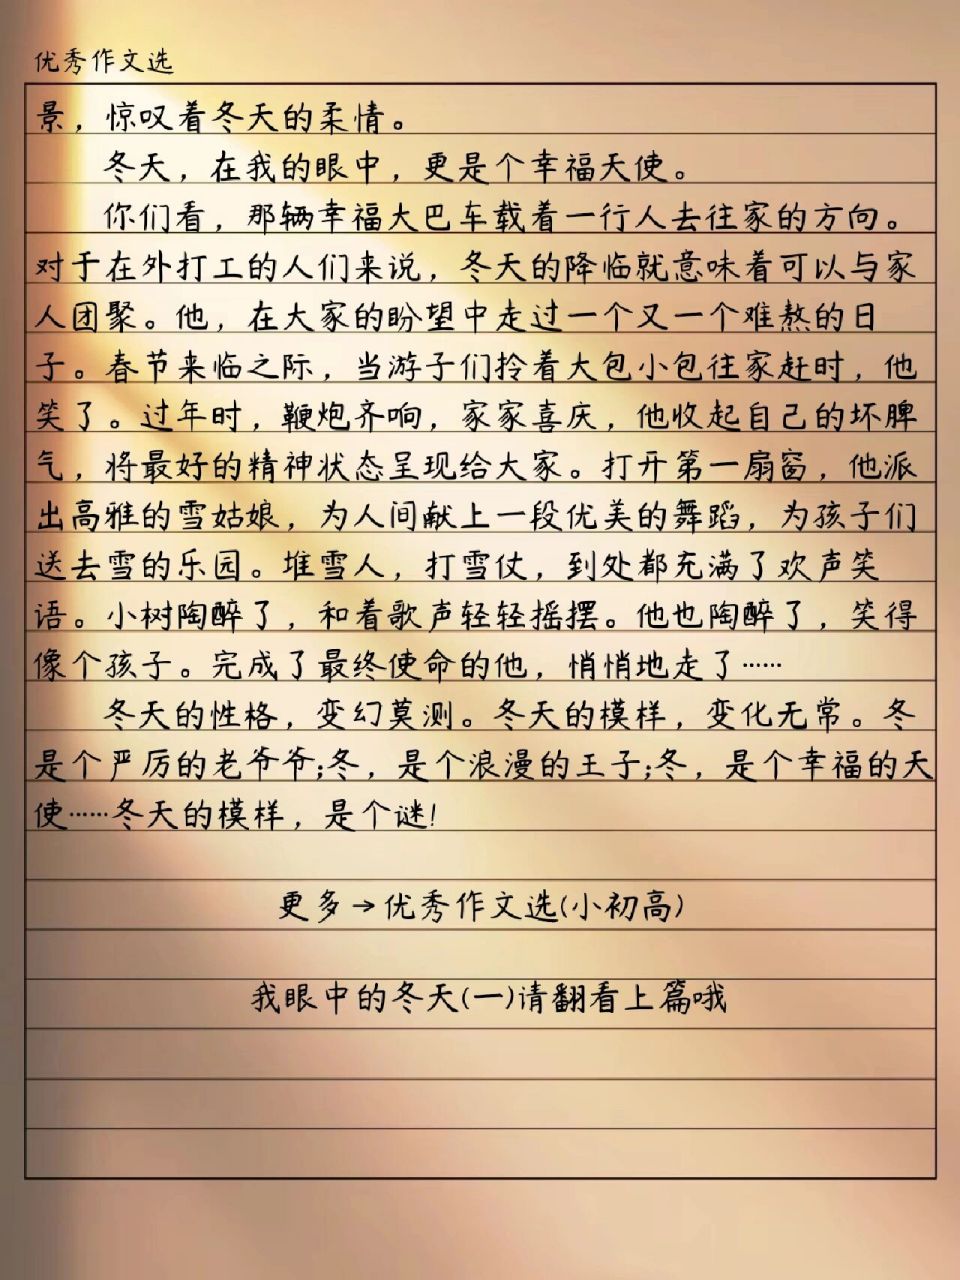 优秀作文选
景，惊叹着冬天的柔情。
冬天，在我的眼中，更是个幸福天使。
你们看，那辆幸福大巴车载着一行人去往家的方向。
对于在外打工的人们来说，冬天的降临就意味着可以与家
人团聚。他，在大家的盼望中走过一个又一个难熬的日
子。春节来临之际，当游子们拎着大包小包往家赶时，他
笑了。过年时，鞭炮齐响，家家喜庆，他收起自己的坏脾
气，将最好的精神状态呈现给大家。打开第一扇窗，他派
出高雅的雪姑娘，为人间献上一段优美的舞蹈，为孩子们
送去雪的乐园。堆雪人，打雪仗，到处都充满了欢声笑
语。小树陶醉了，和着歌声轻轻摇摆。他也陶醉了，笑得
像个孩子。完成了最终使命的他，悄悄地走了……
冬天的性格，变幻莫测。冬天的模样，变化无常。冬
是个严厉的老爷爷;冬，是个浪漫的王子;冬，是个幸福的天
使……冬天的模样，是个谜!
更多→优秀作文选(小初高)
我眼中的冬天(一)请翻看上篇哦